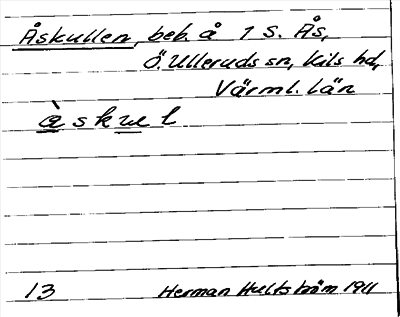 Åskullen, beb. å 1 s. Ås,
Ö. Ulleruds sn, Kils hd,
Värml. län
skul
13 Herman Hultström 1911